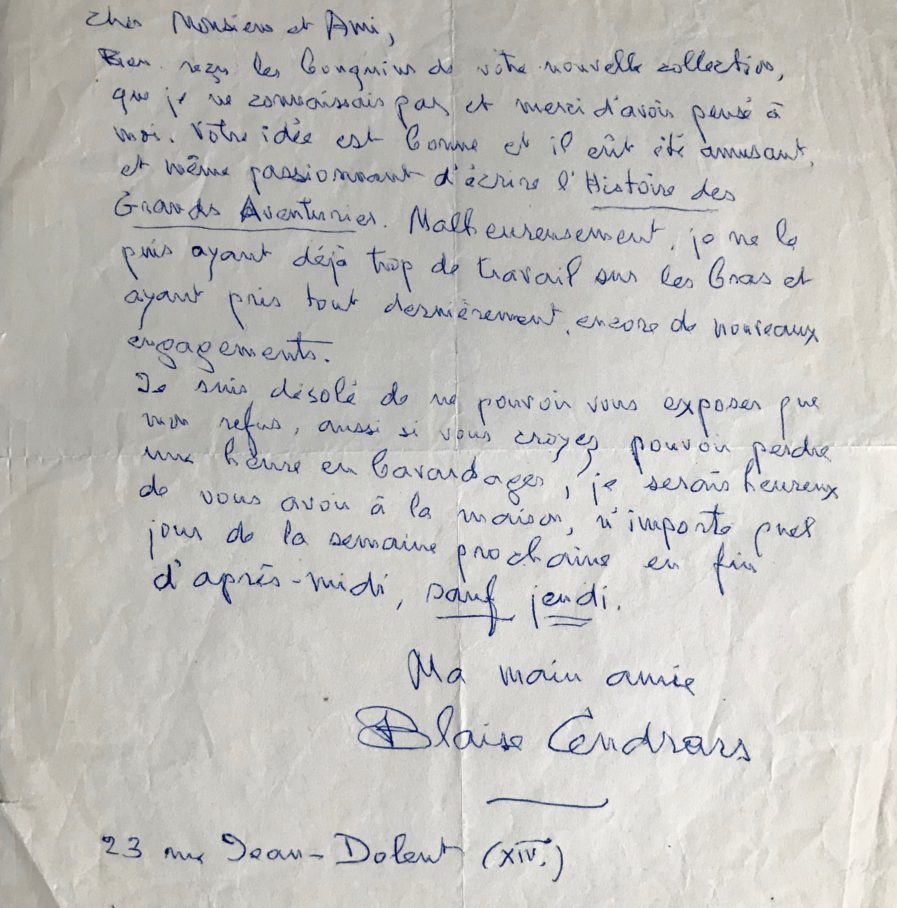 Cher Monsieur et Ami,
Bien reçu les bouquins de votre nouvelle collection,
que je ne connaissais pas et merci d'avoir pensé à
moi. Votre idée est bonne et il eût été amusant,
et même passionnant d'écrire l'Histoire des
Grands Aventuriers. Malheureusement, je ne le
puis ayant déjà trop de travail sur les bras et
ayant pris tout dernièrement, encore de nouveaux
engagements.
Je suis désolé de ne pouvoir vous exposer que
mon refus, aussi si vous croyez pouvoir perdre
une heure en bavardages, je serais heureux
de vous avoir à la maison, n'importe quel
jour de la semaine prochaine en fin
d'après-midi, sauf jeudi.
Ma main amie
Blaise Cendrars
23 rue Jean-Dolent (XIV.)